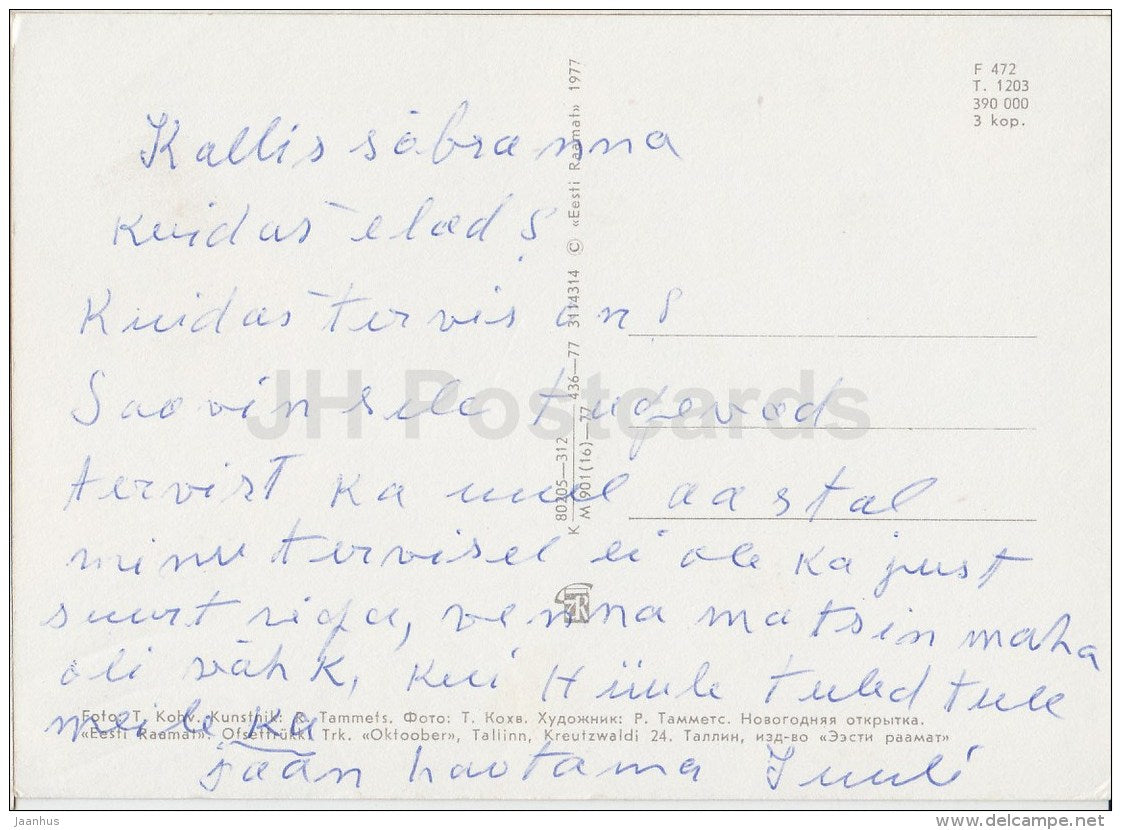 F 472
T. 1203
390 000
3 kop.
Kallis sõbranna
kuidas elad?
Kuidas tervis on?
Soovin sele tugevad
tervist ka uuel aastal
minu tervisel ei ole ka just
suurt viga, venna matsin maha
oli vähk, kui Hiiule tuled tule
meile ka
jään ootama Juuli
80205—312 436—77 3114314 © «Eesti Raamat» 1977
M 901(16)—77
JH Postcards
Foto: T. Kohv. Kunstnik: R. Tammets. Фото: Т. Кохв. Художник: Р. Тамметс. Новогодняя открытка.
«Eesti Raamat». Ofsettrükk. Trk. «Oktoober», Tallinn, Kreutzwaldi 24. Таллин, изд-во «Ээсти раамат»
Jaanhus
delcampe.net